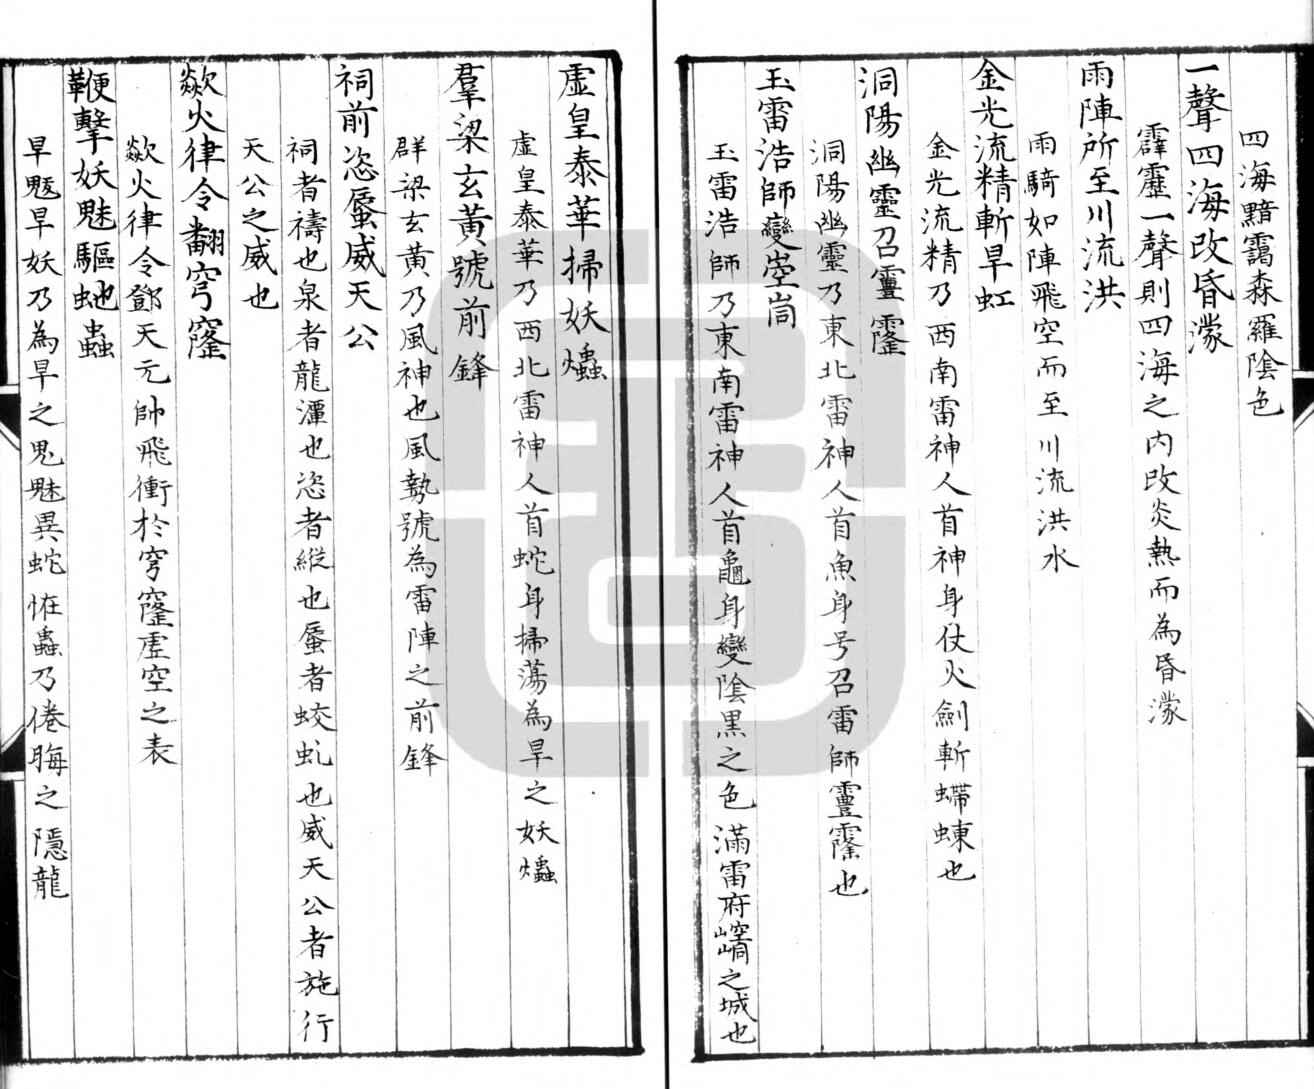 四海黯靄森羅陰色
一聲四海改昏濛
霹靂一聲則四海之内改炎熱而為昏濛
雨陣所至川流洪
雨騎如陣飛空而至川流洪水
金光流精斬旱虹
金光流精乃西南雷神人首神身仗火劍斬螮蝀也
洞陽幽靈召靈
洞陽幽靈乃東北雷神人首魚身号召雷師也
玉雷浩師變崆峒
玉雷浩師乃東南雷神人首龜身變陰黑之色滿雷府之城也
虛皇泰華掃妖爞
虛皇泰華乃西北雷神人首蛇身掃蕩為旱之妖爞
羣梁玄黃號前鋒
群梁玄黃乃風神也風勢號為雷陣之前鋒
祠前恣蜃威天公
祠者禱也泉者龍潭也恣者縱也蜃者蛟虬也威天公者施行
天公之威也
歘火律令翻穹窿
歘火律令鄧天元帥飛衝於穹窿虛空之表
鞭擊妖魅驅虵蟲
旱魃旱妖乃為旱之鬼魅異蛇恠蟲乃倦晦之隱龍